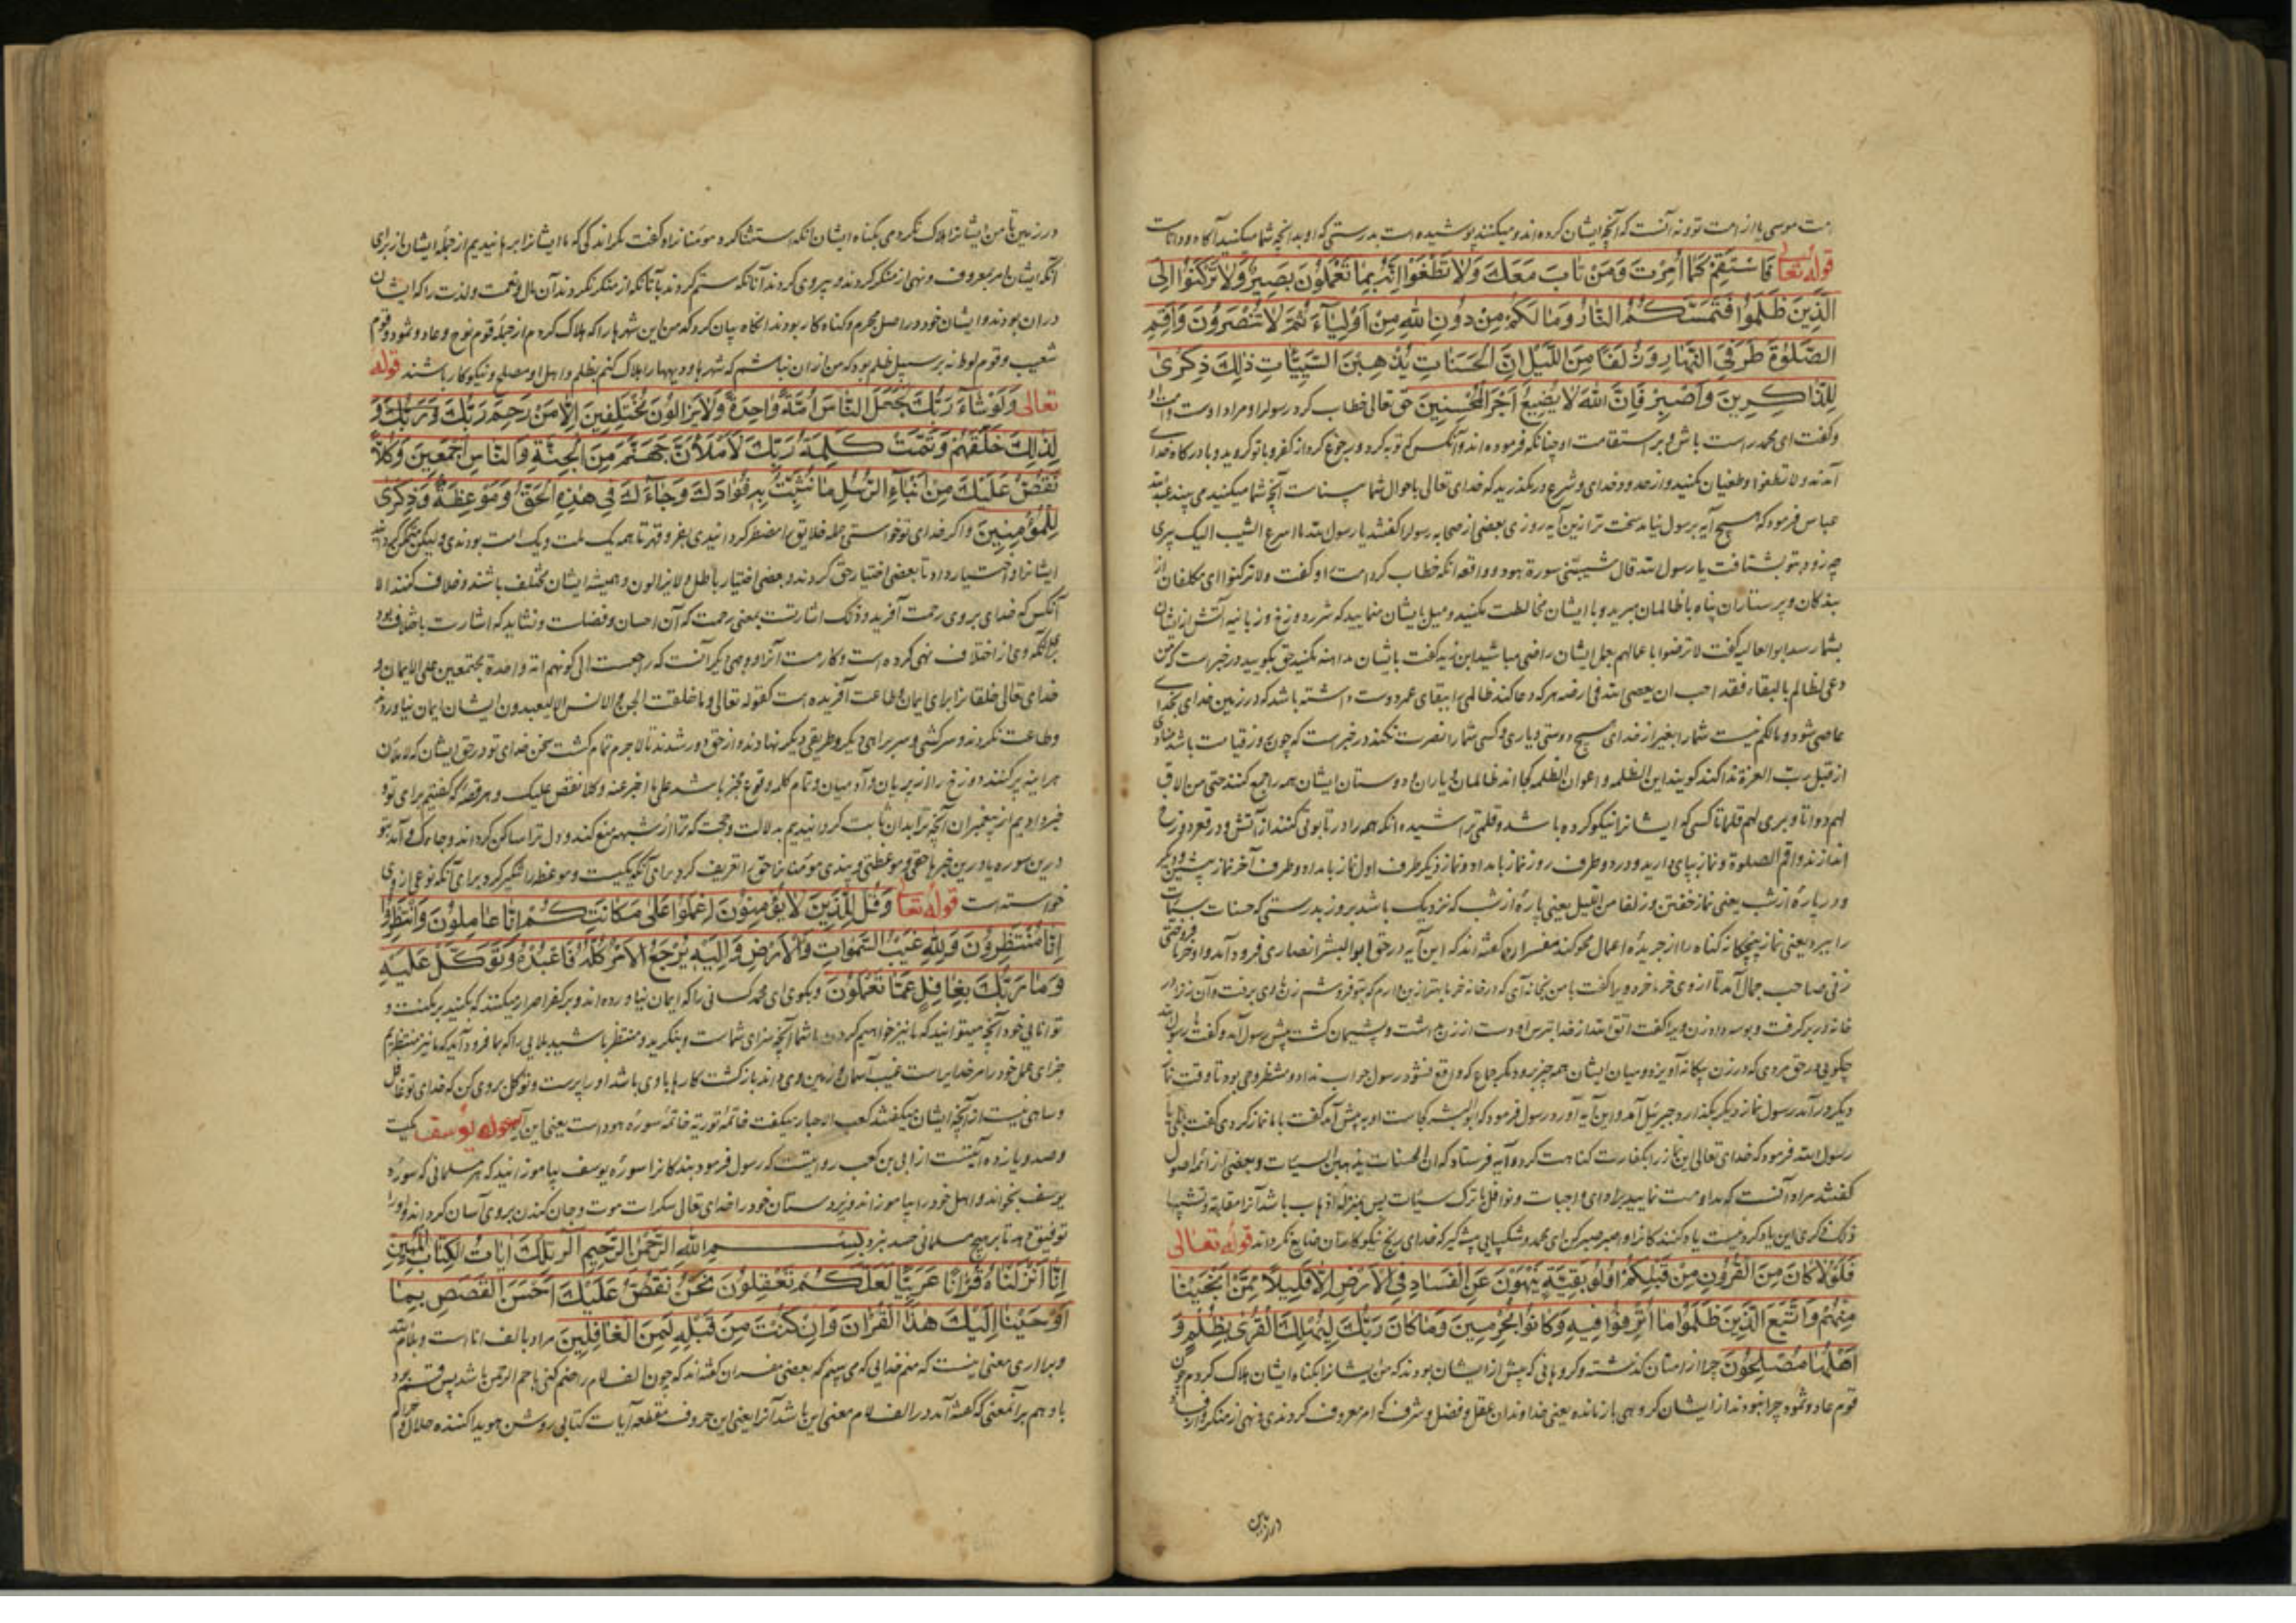 امت موسی یا از امت تو و نه آنست که آنچه ایشان کرده اند و میکنند پوشیده است بدرستی که او بدانچه شما میکنید آگاه و داناست
قوله تعالی فَاسْتَقِمْ كَمَا أُمِرْتَ وَمَنْ تَابَ مَعَكَ وَلَا تَطْغَوْا إِنَّهُ بِمَا تَعْمَلُونَ بَصِيرٌ وَلَا تَرْكَنُوا إِلَى
الَّذِينَ ظَلَمُوا فَتَمَسَّكُمُ النَّارُ وَمَا لَكُمْ مِنْ دُونِ اللهِ مِنْ أَوْلِيَاءَ ثُمَّ لَا تُنْصَرُونَ وَأَقِمِ
الصَّلٰوةَ طَرَفَيِ النَّهَارِ وَزُلَفًا مِنَ اللَّيْلِ إِنَّ الْحَسَنَاتِ يُذْهِبْنَ السَّيِّئَاتِ ذٰلِكَ ذِكْرٰى
لِلذَّاكِرِينَ وَاصْبِرْ فَإِنَّ اللهَ لَا يُضِيعُ أَجْرَ الْمُحْسِنِينَ حق تعالی خطاب کرد رسول را و مراد اوست و امت او
و گفت ای محمد راست باش و بر استقامت او چنانکه فرموده اند و آنکس که توبه کرد و رجوع کرد از کفر و با تو گروید و با درگاه خدای
آمدند و لا تطغوا و طغیان مکنید و از حدود خدای و شرع در مگذرید که خدای تعالی باحوال شما بیناست آنچه شما میکنید می بیند عبدالله
عباس فرمود که هیچ آیه بر رسول نیامد سخت تر ازین آیه روزی بعضی از صحابه رسول را گفتند یا رسول الله ما اسرع الشیب الیک پیری
چه زود بتو بشتافت یا رسول الله قال شیبتنی سورة هود و واقعه آنکه خطاب کرد امت او گفت و لا ترکنوا ای مکلفان از
بندگان و پرستاران پناه با ظالمان مبرید و با ایشان مخالطت مکنید و میل بایشان منمایید که شرر دوزخ و زبانیه آتش از ایشان
بشما رسد ابو العالیه گفت لا ترضوا باعمالهم بعمل ایشان راضی مباشید ابن زید گفت با ایشان مداهنه مکنید حق بگویید و در خبر است که من
دعی لظالم بالبقاء فقد احب ان یعصی الله فی ارضه هر که دعا کند ظالمی را ببقای عمر دوست داشته باشد که در زمین خدای بخدای
عاصی شود و مالکم نیست شما را بغیر از خدای هیچ دوستی و یاری و کسی شما را نصرت نکند در خبر است که چون روز قیامت باشد منادی
از قبل رب العزة ندا کند کوینداین الظلمه و اعوان الظلمه کجا اند ظالمان و یاران و دوستان ایشان همه را جمع کنند حتی من الاق
لهم دواتا و بری لهم قلما تا کسی که ایشانرا نیکو کرده باشد و قلمی تراشیده آنکه همه را در تابوتی کنند از آتش و در قعر دوزخ
اندازند و اقم الصلوة و نماز بپای دارید و در دو طرف روز نماز بامداد و نماز دیگر طرف اول نماز بامداد و طرف آخر نماز پیشین و دیگر
و در پارهٔ از شب یعنی نماز خفتن و زلفا من اللیل یعنی پارهٔ از شب که نزدیک باشد بروز بدرستی که حسنات سیئات
را ببرد یعنی نماز پنجگانه گناه را از جریدهٔ اعمال محو کند مفسران گفته اند که این آیه در حق ابو الیسر انصاری فرود آمد و او خرما فروختی
زنی صاحب جمال آمد تا از وی خرما خرد ویرا گفت با من بخانه آی که در خانه خرما بهتر ازین دارم که بتو فروشم زن با وی برفت و آن زن را در
خانه در بر گرفت و بوسه داد زن ویرا گفت اتق الله از خدا بترس او دست از زن بداشت و پشیمان گشت پیش رسول آمد و گفت یا رسول الله
چگویی در حق مردی که در زن بیگانه آویزد و میان ایشان همه چیز برود مگر جماع که واقع نشود رسول جواب نداد و منتظر وحی بود تا وقت نماز
دیگر درآمد رسول نماز دیگر بگذارد و جبرئیل آمد و این آیه آورد رسول فرمود که ابو الیسر کجاست او به پیش آمد گفت با ما نماز کردی گفت بلی یا
رسول الله فرمود که خدای تعالی این نماز را بکفارت گناهت کرد و آیه فرستاد که ان الحسنات یذهبن السیئات و بعضی از ائمه اصول
گفتند مراد آنست که مداومت نمایید بر ادای واجبات و نوافل با ترک سیئات پس بمنزلهٔ اذهاب باشد آنرا مقابله و تشبیها
ذلک ذکری این یاد کردنیست یاد کنندگانرا و اصبر صبر کن ای محمد و شکیبایی پیش گیر که خدای رنج نیکوکاران ضایع نگرداند قوله تعالی
فَلَوْلَا كَانَ مِنَ الْقُرُونِ مِنْ قَبْلِكُمْ أُولُو بَقِيَّةٍ يَنْهَوْنَ عَنِ الْفَسَادِ فِي الْأَرْضِ إِلَّا قَلِيلًا مِمَّنْ أَنْجَيْنَا
مِنْهُمْ وَاتَّبَعَ الَّذِينَ ظَلَمُوا مَا أُتْرِفُوا فِيهِ وَكَانُوا مُجْرِمِينَ وَمَا كَانَ رَبُّكَ لِيُهْلِكَ الْقُرٰى بِظُلْمٍ وَ
أَهْلُهَا مُصْلِحُونَ چرا از امتان گذشته و گروهانی که پیش از ایشان بودند که من ایشانرا بگناه ایشان هلاک کردم چون
قوم عاد و ثمود چرا نبودند از ایشان گروهی بازمانده یعنی خداوندان عقل و فضل و شرف که امر معروف کردندی و نهی از منکر و از فساد
در زمین
در زمین تا من ایشانرا هلاک نکردمی بگناه ایشان آنکه استثنا کرد مومنانرا و گفت مگر اندکی که ما ایشانرا برهانیدیم از جمله ایشان از برای
آنکه ایشان امر بمعروف و نهی از منکر کردند و پیروی کردند آنانکه ستم کردند با آنانکه از منکر نکردند آن مال و نعمت و لذت را که ایشان
در آن بودند و ایشان خود در اصل مجرم و گناه کار بودند آنگاه بیان کرد که من این شهرها را که هلاک کردم از جمله قوم نوح و عاد و ثمود و قوم
شعیب و قوم لوط نه بر سبیل ظلم بود که من از آن نباشم که شهرها و دیهها را هلاک کنم بظلم و اهل او مصلح و نیکوکار باشند قوله
تعالی وَلَوْ شَاءَ رَبُّكَ لَجَعَلَ النَّاسَ أُمَّةً وَاحِدَةً وَلَا يَزَالُونَ مُخْتَلِفِينَ إِلَّا مَنْ رَحِمَ رَبُّكَ وَ
لِذٰلِكَ خَلَقَهُمْ وَتَمَّتْ كَلِمَةُ رَبِّكَ لَأَمْلَأَنَّ جَهَنَّمَ مِنَ الْجِنَّةِ وَالنَّاسِ أَجْمَعِينَ وَكُلًّا
نَقُصُّ عَلَيْكَ مِنْ أَنْبَاءِ الرُّسُلِ مَا نُثَبِّتُ بِهِ فُؤَادَكَ وَجَاءَكَ فِي هٰذِهِ الْحَقُّ وَمَوْعِظَةٌ وَذِكْرٰى
لِلْمُؤْمِنِينَ و اگر خدای تو خواستی جمله خلایق را مضطر گردانیدی بقهر تا همه یک ملت و یک امت بودندی و لیکن
ایشانرا اختیار داد تا بعضی اختیار حق کردند و بعضی اختیار باطل و لا یزالون و همیشه ایشان مختلف باشند و خلاف کنند الا
آنکس که خدای بر وی رحمت آفرید و ذلک اشارتست بمعنی رحمت که آن احسان و فضلست و نشاید که اشارت باختلاف بود
برای آنکه وی از اختلاف نهی کرده است و کارهست آنرا و وجهی دیگر آنست که راجعست الی کونهم امة واحدة مجتمعین علی الایمان و
خدای تعالی خلقانرا برای ایمان و طاعت آفریده است کقوله تعالی و ما خلقت الجن و الانس الا لیعبدون ایشان ایمان نیاوردند
و طاعت نکردند و سرکشی و سر براهی دیگر و طریقی دیگر نهادند و از حق دور شدند تا لاجرم تمام گشت سخن خدای تو در حق ایشان که لاملان
هراینه پر کنند دوزخ را از پریان و آدمیان و تمام کلمه وقوع مخبر باشد علی ما اخبر عنه و کلا نقص علیک و هر قصه که گفتیم برای تو و
خبر دادیم از پیغمبران آنچه ترا بدان ثابت گردانیدیم بدلالت و حجت که ترا از شبهه منع کند و دل ترا ساکن گرداند و جاءک و آمد بتو
درین سوره یا درین خبرها حقی و موعظتی و پندی مومنانرا حق را تعریف کرد برای آنکه یکیست و موعظه را تنکیر کرد برای آنکه نوعی از وی
خواسته است قوله تعا وَقُلْ لِلَّذِينَ لَا يُؤْمِنُونَ اعْمَلُوا عَلٰى مَكَانَتِكُمْ إِنَّا عَامِلُونَ وَانْتَظِرُوا
إِنَّا مُنْتَظِرُونَ وَلِلّٰهِ غَيْبُ السَّمٰوَاتِ وَالْأَرْضِ وَإِلَيْهِ يُرْجَعُ الْأَمْرُ كُلُّهُ فَاعْبُدْهُ وَتَوَكَّلْ عَلَيْهِ
وَمَا رَبُّكَ بِغَافِلٍ عَمَّا تَعْمَلُونَ و بگوی ای محمد کسانی را که ایمان نیاورده اند و بر کفر اصرار میکنند که بکنید بر مکنت و
توانایی خود آنچه میتوانید که ما نیز خواهیم کردن با شما آنچه سزای شماست و بنگرید و منتظر باشید بلایی را که بما فرود آید که ما نیز منتظریم
جزای عمل خود را مر خدایراست غیب آسمان و زمین وی داند بازگشت کارها با وی باشد او را پرست و توکل بر وی کن که خدای تو غافل
و ساهی نیست از آنچه ایشان میکنند کعب الاحبار میگفت فاتحهٔ توریة خاتمهٔ سورهٔ هود است یعنی این آیه سوره یوسف مکیست
و صد و یازده آیتست از ابی بن کعب روایتست که رسول فرمود بندگانرا سورهٔ یوسف بیاموزانید که هر مسلمانی که سورهٔ
یوسف بخواند و اهل خود را بیاموزاند و زیردستان خود را خدای تعالی سکرات موت و جان کندن بر وی آسان گرداند و او را
توفیق دهد تا بر هیچ مسلمانی حسد نبرد بِسْمِ اللهِ الرَّحْمٰنِ الرَّحِيمِ الٓر تِلْكَ اٰيَاتُ الْكِتَابِ الْمُبِينِ
إِنَّا أَنْزَلْنَاهُ قُرْاٰنًا عَرَبِيًّا لَعَلَّكُمْ تَعْقِلُونَ نَحْنُ نَقُصُّ عَلَيْكَ أَحْسَنَ الْقَصَصِ بِمَا
أَوْحَيْنَا إِلَيْكَ هٰذَا الْقُرْاٰنَ وَإِنْ كُنْتَ مِنْ قَبْلِهِ لَمِنَ الْغَافِلِينَ مراد بالف انا است و بلام الله
و برا اری معنی اینست که منم خدایی که می بینم که بعضی مفسران گفته اند که چون الف لام را ضم کنی با حم الرحمن باشد پس قسم بود
با و هم بر آنمعنی که گفته آمد در الف لام معنی این باشد آنرا یعنی این حروف مقطعه آیات کتابی روشن هویدا کننده حلال و حرام